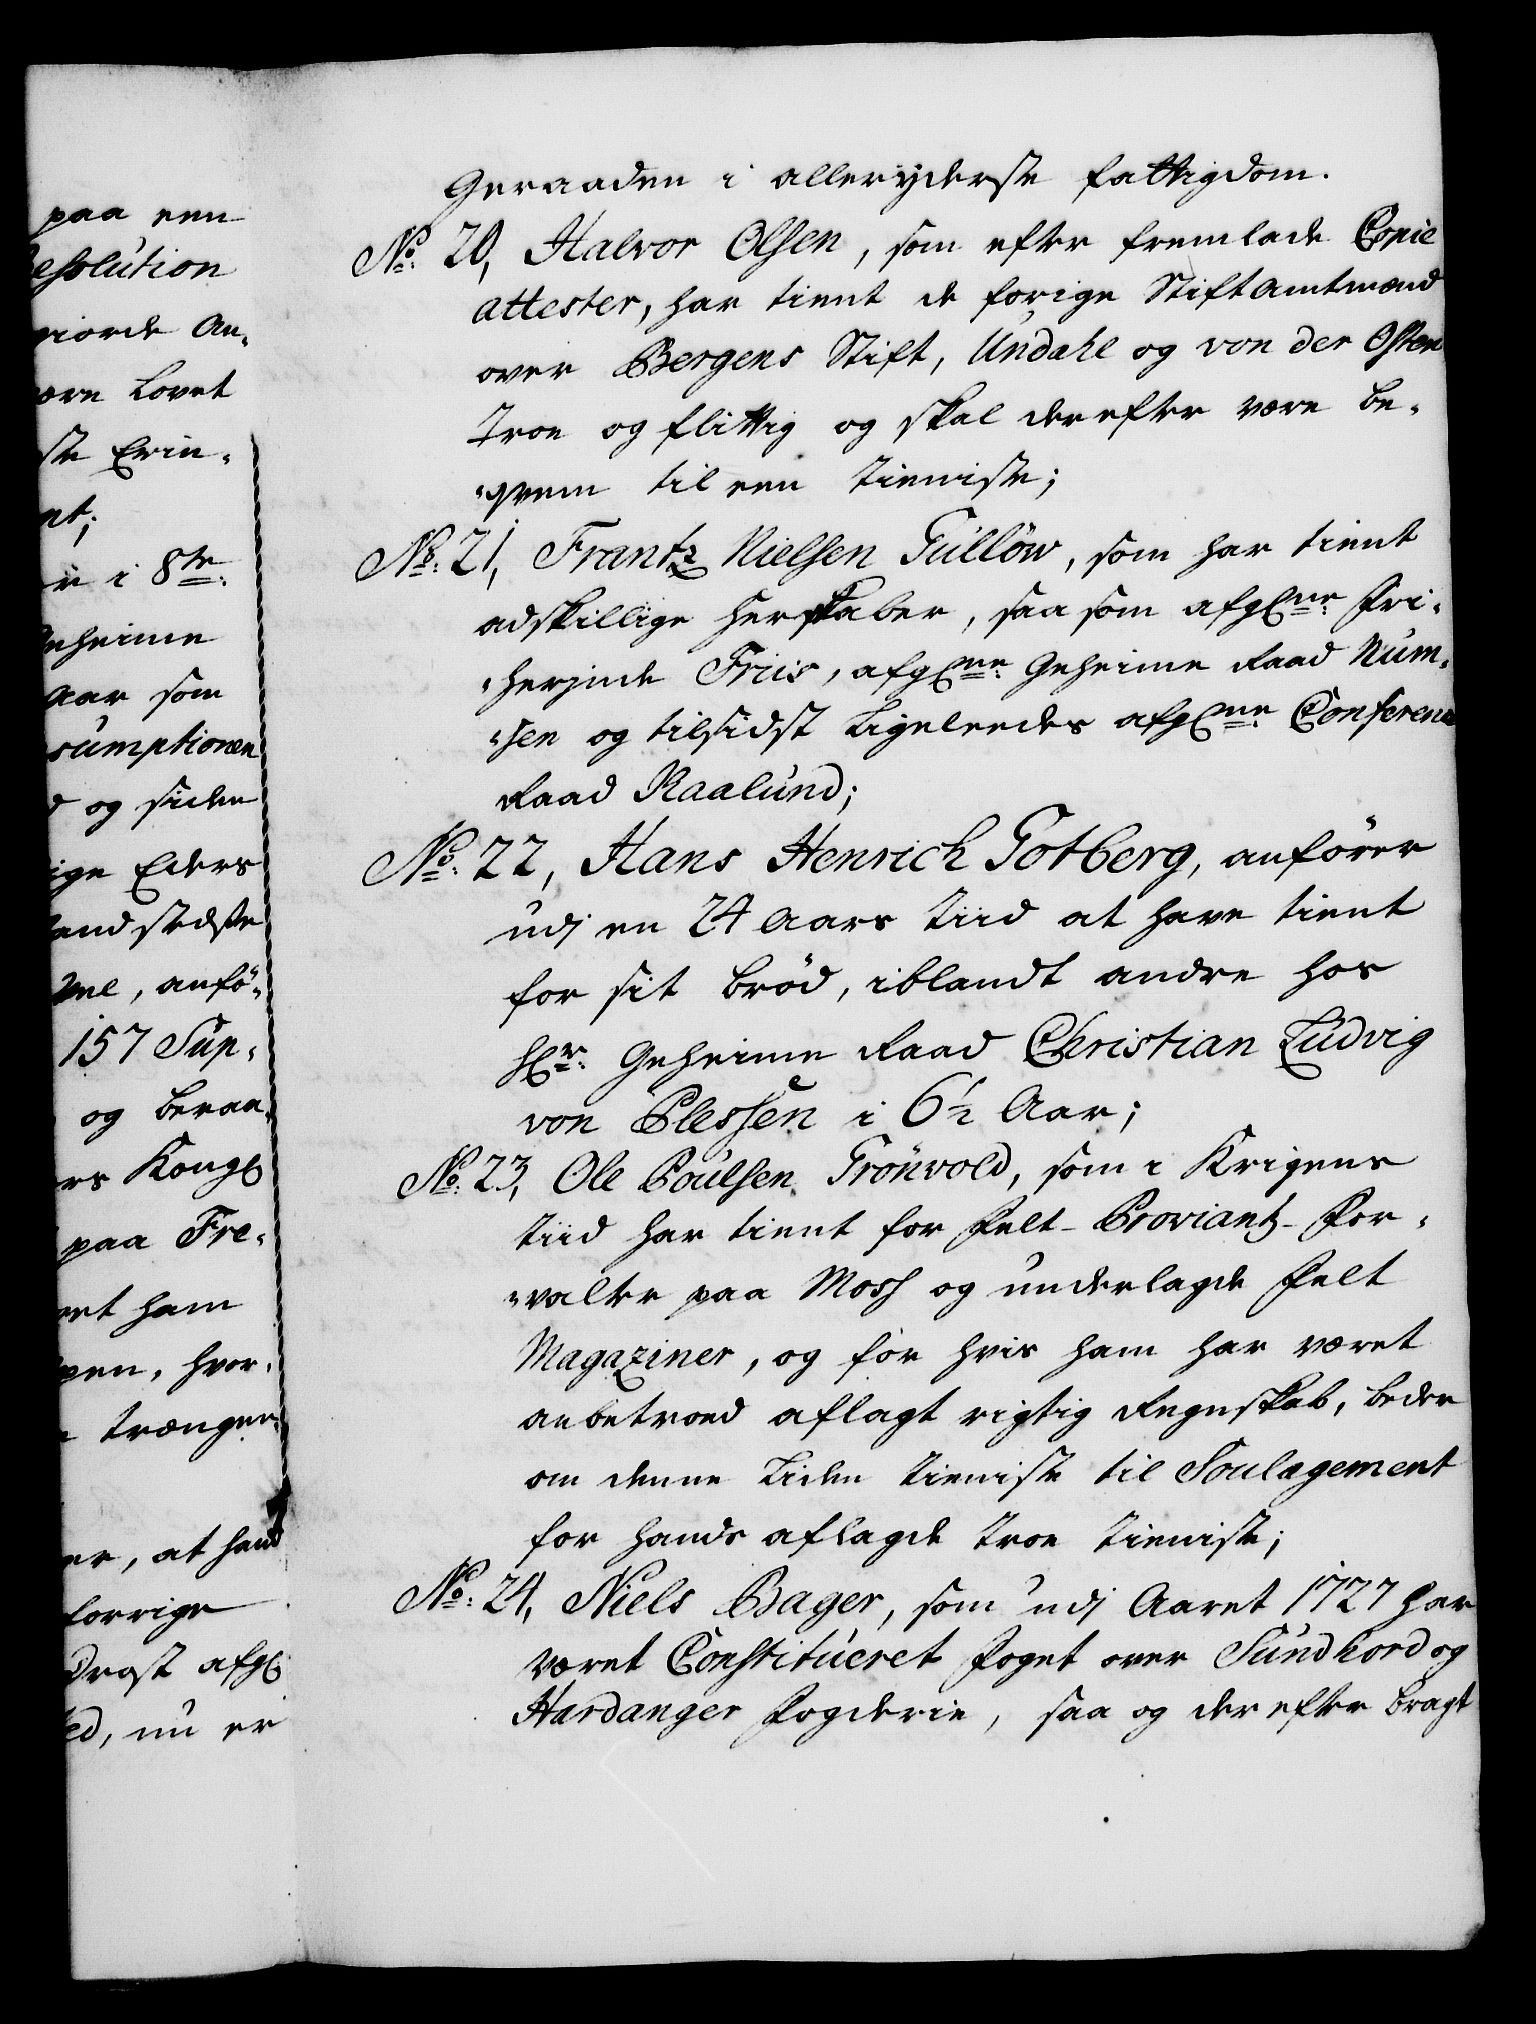 paa een
esolution
giorde An-
ære Lovet
ste Erin-
nt;
i 8te
eheime
Aar som
sumptionen
og siden
ige Eders
and stedste
, anfö-
157 Sup-
og beraa-
rs Kongl
paa Fre-
et ham
pen, hvor-
trænger
er, at hand
forrige
Drost afgl
ed, nu er
Geraaden i alleryderste fattigdom.
No. 20, Halvor Olsen, som efter fremlade Copie
attester, har tient de forige Stiftamtmænd
over Bergens Stift, Undahl og von der Osten
troe og flittig og skal derefter være be-
qvem til een tieniste;
No. 21, Frantz Nielsen Güllöw, som har tient
adskillige herskaber, saa som afgl.ne Fri-
herinde Friis, afgl.ne Geheime Raad Num-
sen og tilsidst Ligeleedes afgl.ne Conference
Raad Raalund;
No. 22, Hans Henrich Gotberg, anfører
udj en 24 Aars tiid at have tient
for sit brød, iblandt andre hos
Hr. Geheime Raad Christian Ludvig
von Plessen i 6½ Aar;
No. 23, Ole Poulsen Grönvold, som i Krigens
tiid har tient for Felt-Proviantz-For-
valter paa Moss og underlagde Felt
Magaziner, og for hvis ham har været
anbetroed aflagt rigtig Regnskab, beder
om denne Liden tieniste til Soulagement
for hands aflagde troe tieniste;
No. 24, Niels Bager, som udj Aaret 1727 har
været Constitueret Foget over Sundhord og
Hardanger Fogderie, saa og derefter bragt